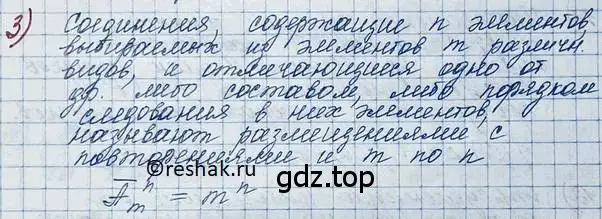 3) Соединения, содержащие n элементов,
выбираемых из элементов m различн.
видов, и отличающиеся одно от
др. либо составом, либо порядком
следования в них элементов,
называют размещениями с
повторениями из m по n
Ā_m^n = m^n
gdz.top